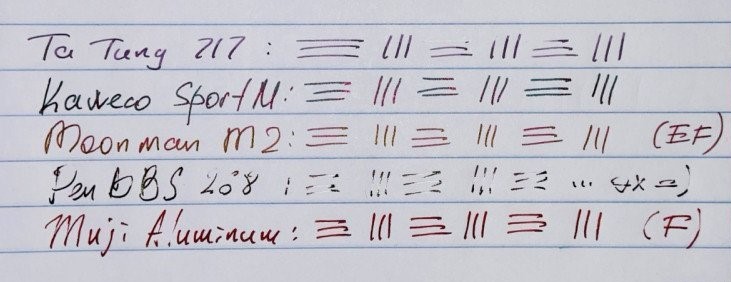 Ta Tung 217 :
Kaweco Sport M:
Moonman M2: (EF)
Pen BBS 208 :
Muji Aluminum: (F)